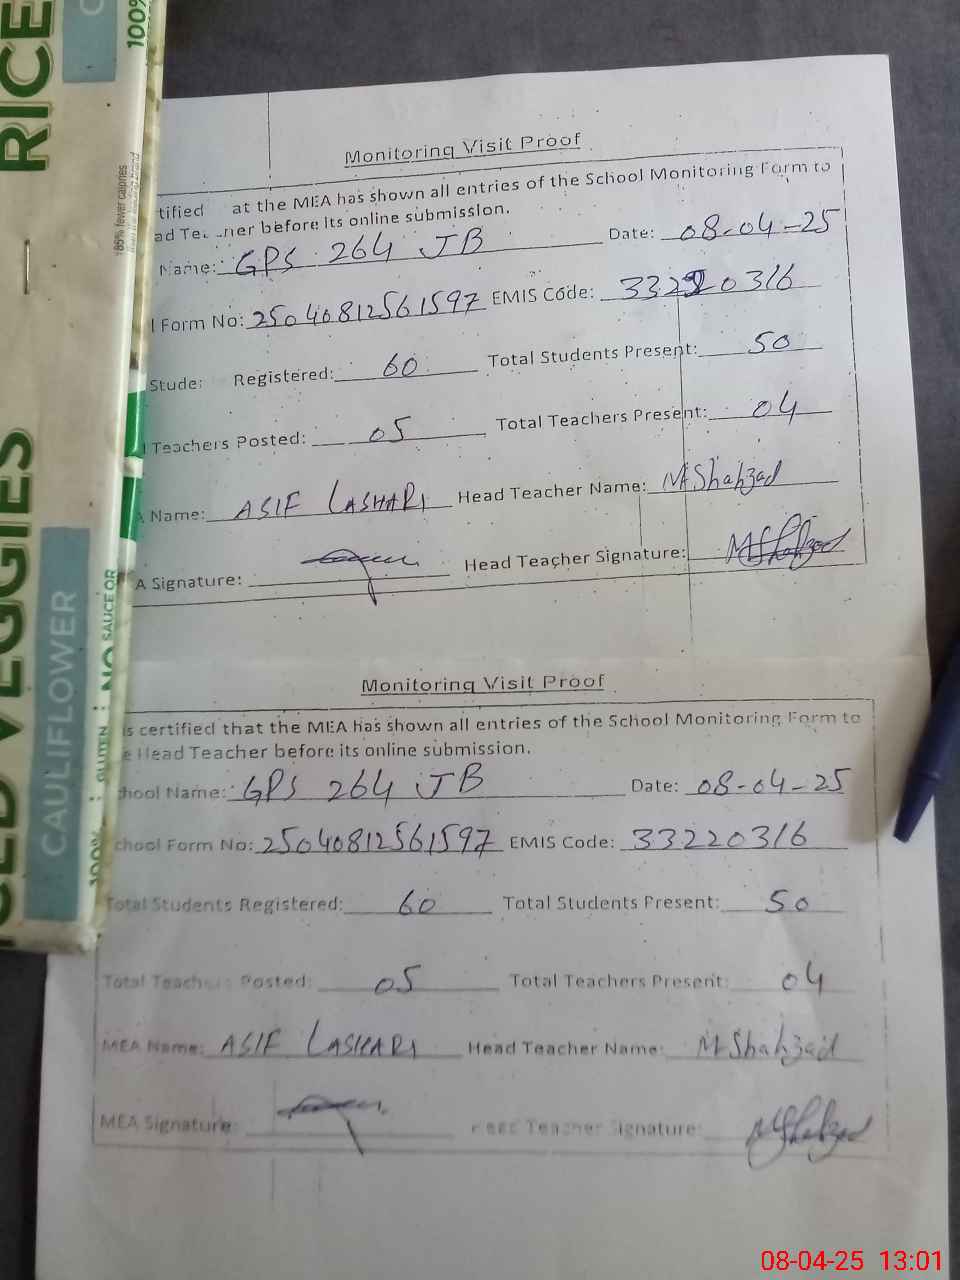 RICE
100%
85% fewer calories
ED VEGGIES
CAULIFLOWER
GLUTEN
NO SAUCE OR
100%
Monitoring Visit Proof
tified at the MEA has shown all entries of the School Monitoring Form to
ad Te ner before its online submission.
Name: GPS 264 JB Date: 08-04-25
l Form No: 25040812561597 EMIS Code: 33220316
Stude: Registered: 60 Total Students Present: 50
l Teachers Posted: 05 Total Teachers Present: 04
A Name: ASIF LASHARI Head Teacher Name: M Shahzad
A Signature: Head Teacher Signature: M Shahzad
Monitoring Visit Proof
is certified that the MEA has shown all entries of the School Monitoring Form to
e Head Teacher before its online submission.
chool Name: GPS 264 JB Date: 08-04-25
chool Form No: 25040812561597 EMIS Code: 33220316
Total Students Registered: 60 Total Students Present: 50
Total Teachers Posted: 05 Total Teachers Present: 04
MEA Name: ASIF LASHARI Head Teacher Name: M Shahzad
MEA Signature: Head Teacher Signature: M Shahzad
08-04-25 13:01